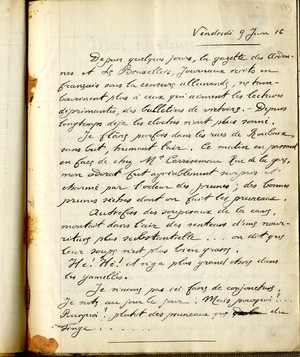 Vendredi 9 Juin 16
Depuis quelques jours, la gazette des Arden-
nes et Le Bruxellois, Journaux écrits en
français sous la censure allemande, ne tam-
bourinent plus à ceux qui aiment les lectures
déprimantes, des bulletins de victoire. - Depuis
longtemps déjà les cloches n'ont plus sonné.
Je flâne parfois dans les rues de Roubaix
sans but, humant l'air. Ce matin en passant
en face de chez Mr Carissimo Rue de la gare,
mon odorat fut agréablement surpris et
charmé par l'odeur des prunes; des bonnes
prunes sèches dont on fait les pruneaux.
Autrefois des soupiraux de la cave,
montait dans l'air des senteurs d'une nour-
riture plus substantielle ... on dit que
leur soupe n'est plus bien grasse.
Hé! Hé! il n'y a plus grand chose dans
les gamelles.
Je n'aime pas ici faire de conjectures,
Je note au jour le jour. Mais pourquoi?
Pourquoi! plutôt des pruneaux que du
singe